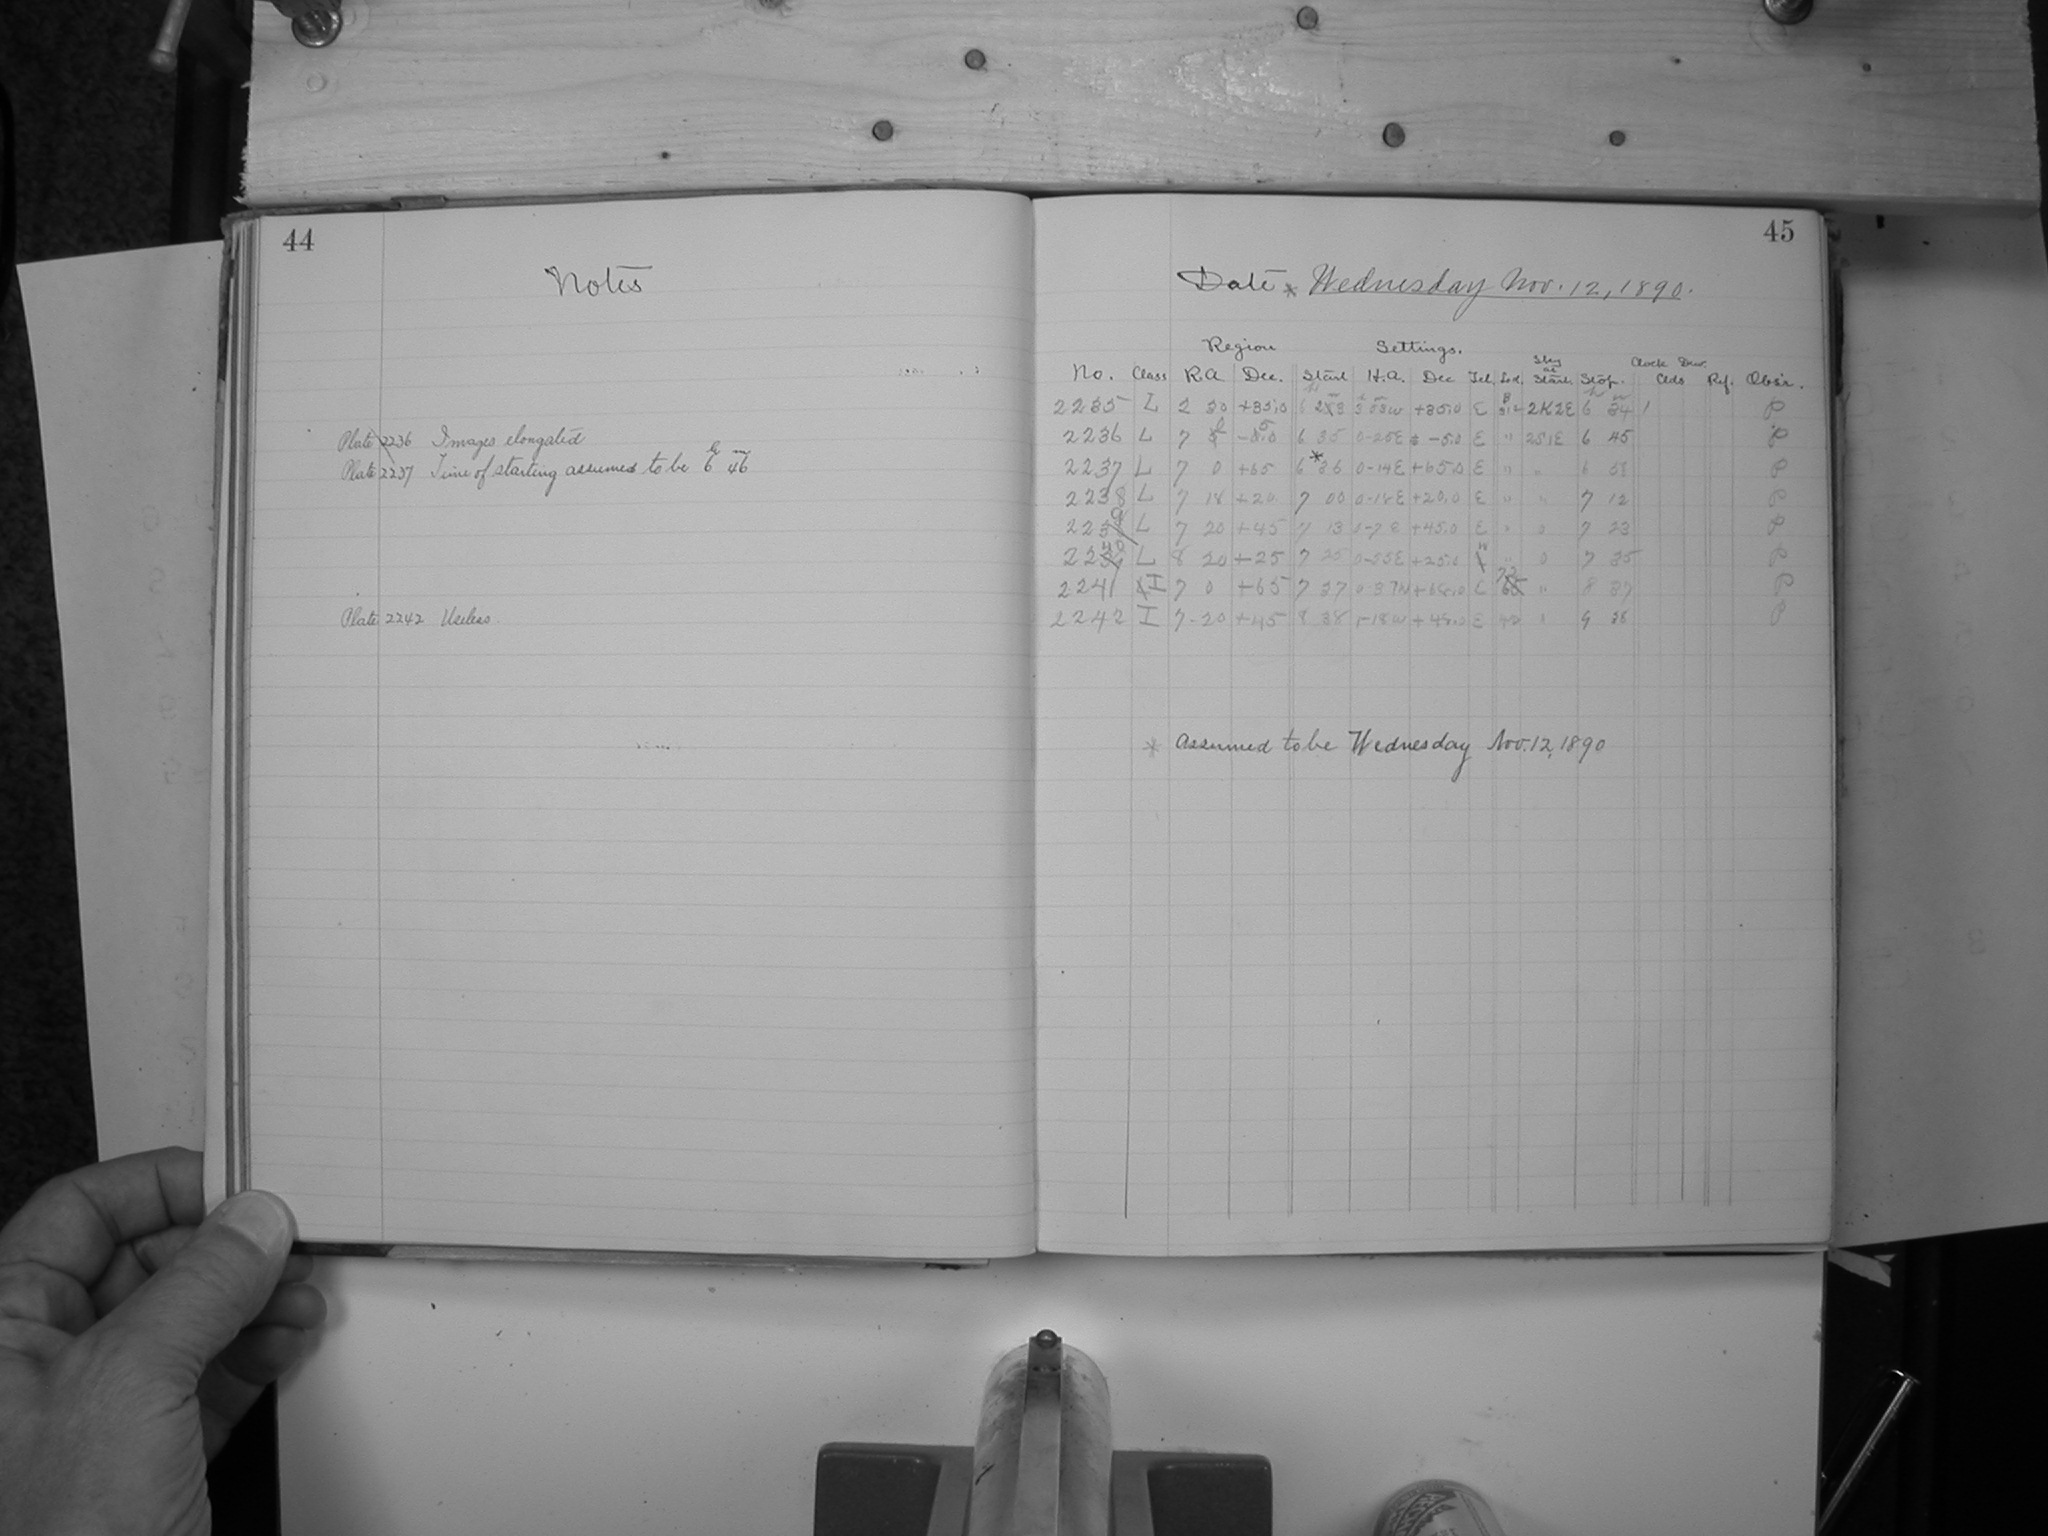 44
Notes
Plate 2236 Images elongated
Plate 2237 Time of starting assumed to be 6 h 46 m
Plate 2242 Useless.
45
Date * Wednesday Nov. 12, 1890.
Region Settings.
No. Class R.A. Dec. Start H.A. Dec Tel. Sky at Start. Stop. Clock Clds Ref. Obs'r.
2235 L 2 30 +35.0 6 +35.0 E 2K2E 6 34 P
2236 L 7 6 35 0-25E -5.0 E " 251E 6 45 P
2237 L 7 0 +65 6 *36 0-14E +65.0 E " " 6 P
2238 L 7 18 +20 7 00 0-18E +20.0 E " " 7 12 P
2239 L 7 20 +45 7 13 0-7E +45.0 E " 7 23 P
2240 L 8 20 +25 7 25 0-55E +25.0 " 7 35 P
2241 I 7 0 +65 7 37 E " 8 37 P
2242 I 7-20 +45 8 38 1-18W E 9 38 P
* Assumed to be Wednesday Nov. 12, 1890